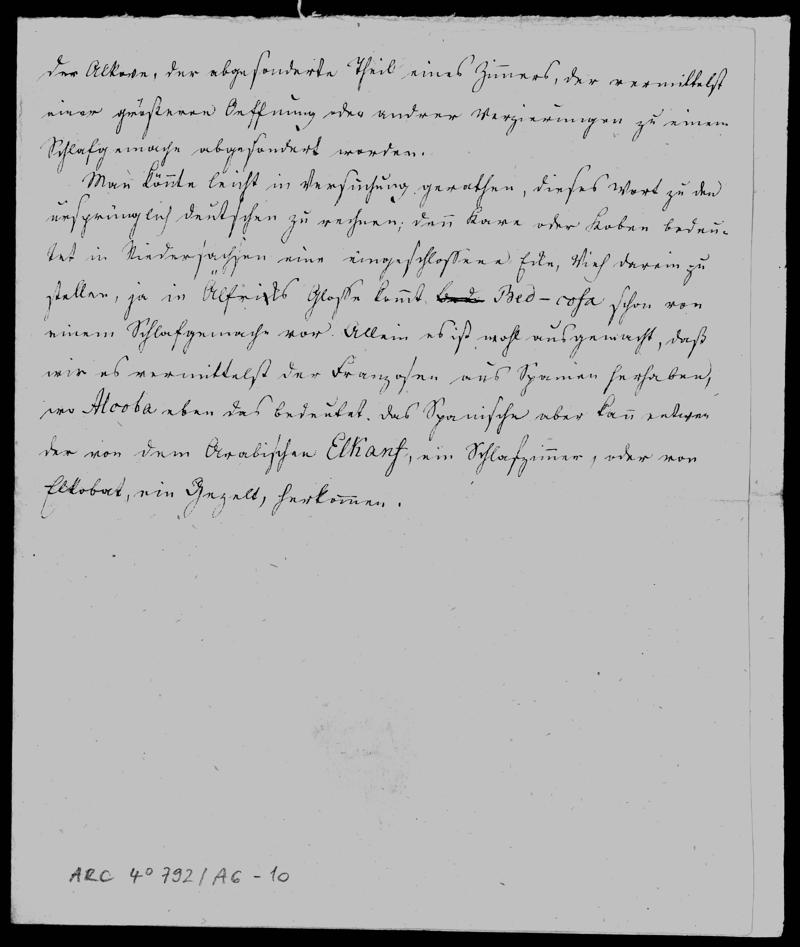 der Alkove, der abgesonderte Theil eines Zimmers, der vermittelst
einer größeren Oeffnung oder andrer Verzierungen zu einem
Schlafgemache abgesondert worden.
Man könnte leicht in Versuchung gerathen, dieses Wort zu den
ursprünglich deutschen zu rechnen; denn Kave oder Koben bedeu-
tet in Niedersachsen eine eingeschlossene Ecke, Vieh darein zu
stellen, ja in Älfriks Glosse kommt Bed-cofa schon von
einem Schlafgemache vor. Allein es ist wohl ausgemacht, daß
wir es vermittelst der Franzosen aus Spanien herhaben,
wo Alcoba eben das bedeutet. das Spanische aber kann entwe
der von dem Arabischen Elkauf, ein Schlafzimmer, oder von
Elkobat, ein Gezelt, herkommen.
ARC 4° 792 / A6 - 10